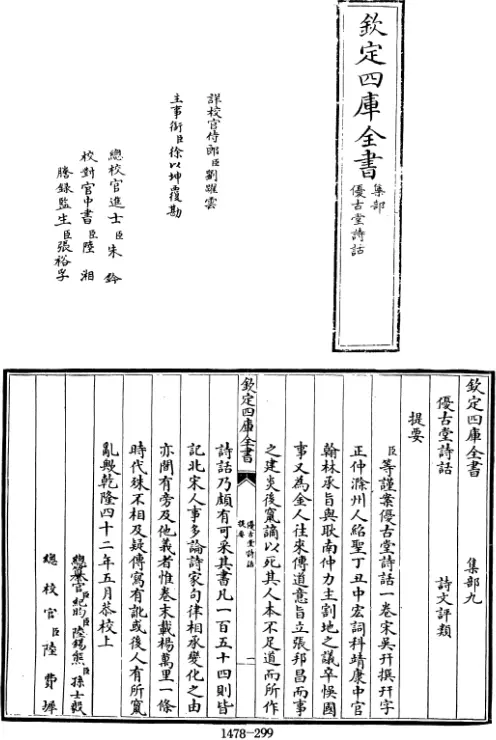 欽定四庫全書
集部
優古堂詩話
詳校官侍郎臣劉躍雲
主事銜臣徐以坤覆勘
總校官進士臣朱鈐
校對官中書臣陸湘
謄錄監生臣張裕孚
欽定四庫全書 集部九
優古堂詩話 詩文評類
提要
臣等謹案優古堂詩話一卷宋吳幵撰幵字
正仲滁州人紹聖丁丑中宏詞科靖康中官
翰林承旨與耿南仲力主割地之議卒悞國
事又為金人往來傳道意旨立張邦昌而事
之建炎後竄謫以死其人本不足道而所作
欽定四庫全書
優古堂詩話
提要
一
詩話乃頗有可采其書凡一百五十四則皆
記北宋人事多論詩家句律相承變化之由
亦間有旁及他義者惟卷末載楊萬里一條
時代殊不相及疑傳寫有訛或後人有所竄
亂歟乾隆四十二年五月恭校上
總纂官臣紀昀臣陸錫熊臣孫士毅
總校官臣陸費墀
1478-299